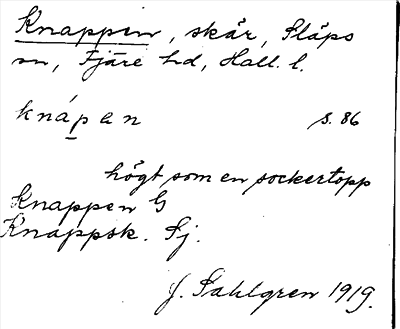 Knappen, skär, Släps
sn, Fjäre hd, Hall. l.
knápen s. 86
högt som en sockertopp
Knappen G
Knappsk. Sj.
J. Sahlgren 1919.